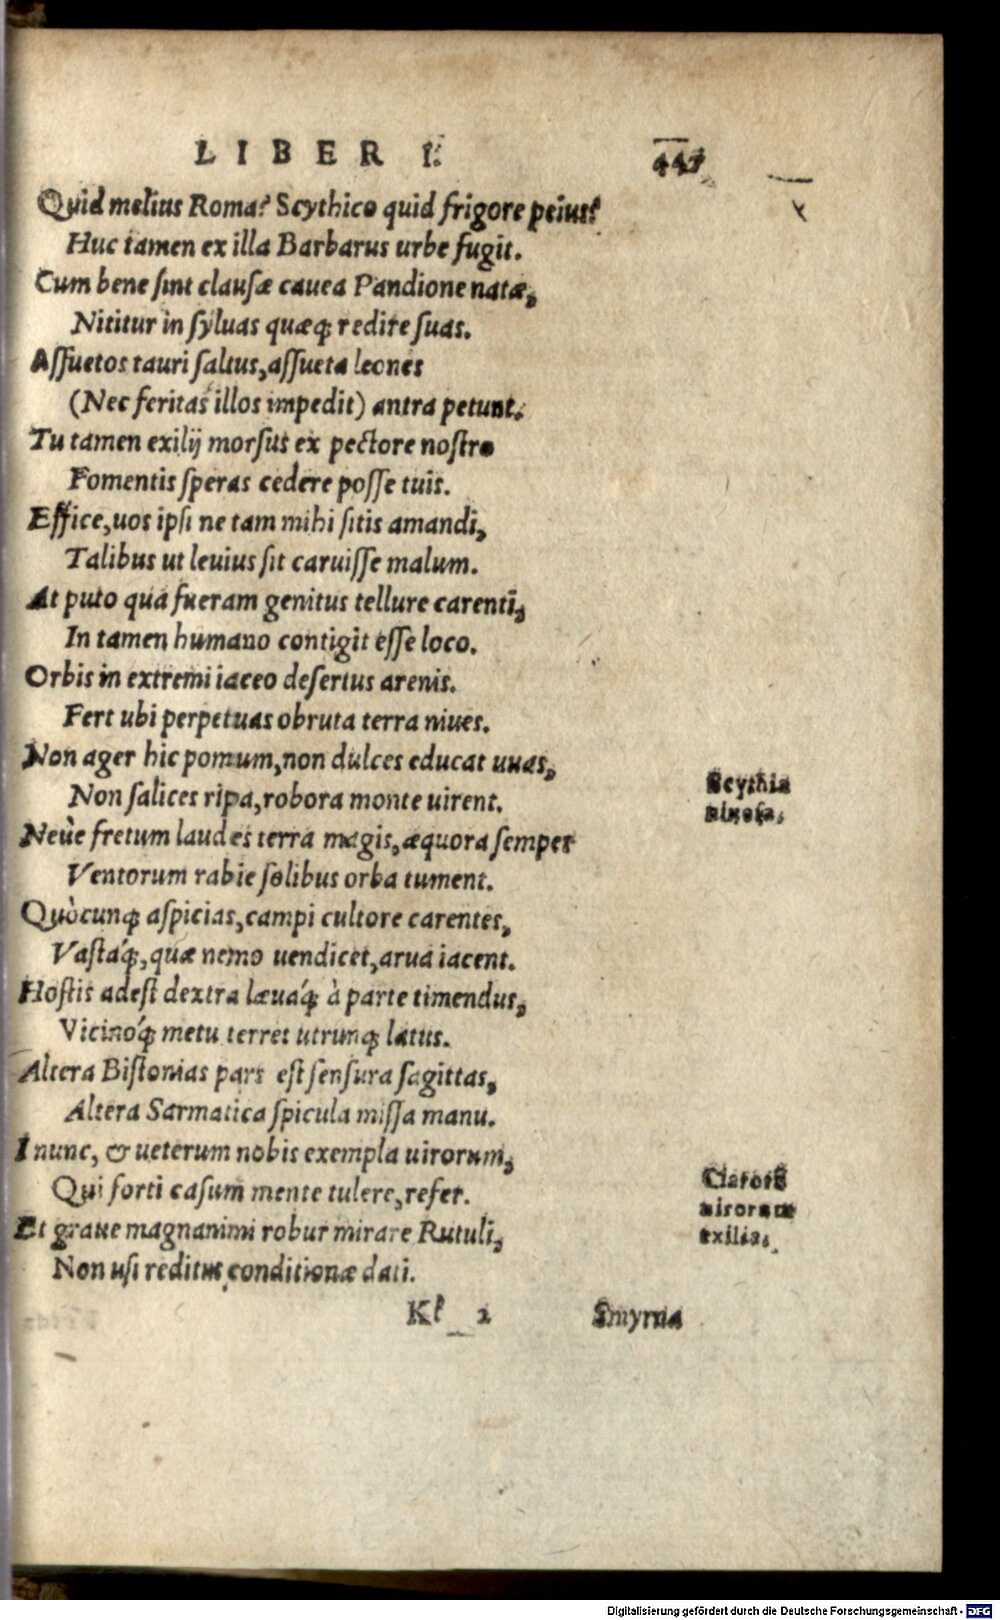 LIBER I.
447
Quid melius Roma? Scythico quid frigore peius?
Huc tamen ex illa Barbarus urbe fugit.
Cum bene sint clausæ cauea Pandione natæ,
Nititur in syluas quæq; redire suas.
Assuetos tauri saltus, assueta leones
(Nec feritas illos impedit) antra petunt.
Tu tamen exilij morsus ex pectore nostro
Fomentis speras cedere posse tuis.
Effice, uos ipsi ne tam mihi sitis amandi,
Talibus ut leuius sit caruisse malum.
At puto qua fueram genitus tellure carenti,
In tamen humano contigit esse loco.
Orbis in extremi iaceo desertus arenis.
Fert ubi perpetuas obruta terra niues.
Non ager hic pomum, non dulces educat uuas,
Non salices ripa, robora monte uirent.
Scythia
niuosa.
Neùe fretum laudes terra magis, æquora semper
Ventorum rabie solibus orba tument.
Quòcunq; aspicias, campi cultore carentes,
Vastáq;, quæ nemo uendicet, arua iacent.
Hostis adest dextra læuáq; à parte timendus,
Vicinóq; metu terret utrunq; latus.
Altera Bistonias pars est sensura sagittas,
Altera Sarmatica spicula missa manu.
I nunc, & ueterum nobis exempla uirorum,
Qui forti casum mente tulere, refer.
Clarorũ
uirorum
exilia.
Et graue magnanimi robur mirare Rutuli,
Non usi reditus conditionæ dati.
Kſ 2 Smyrna
Digitalisierung gefördert durch die Deutsche Forschungsgemeinschaft - DFG